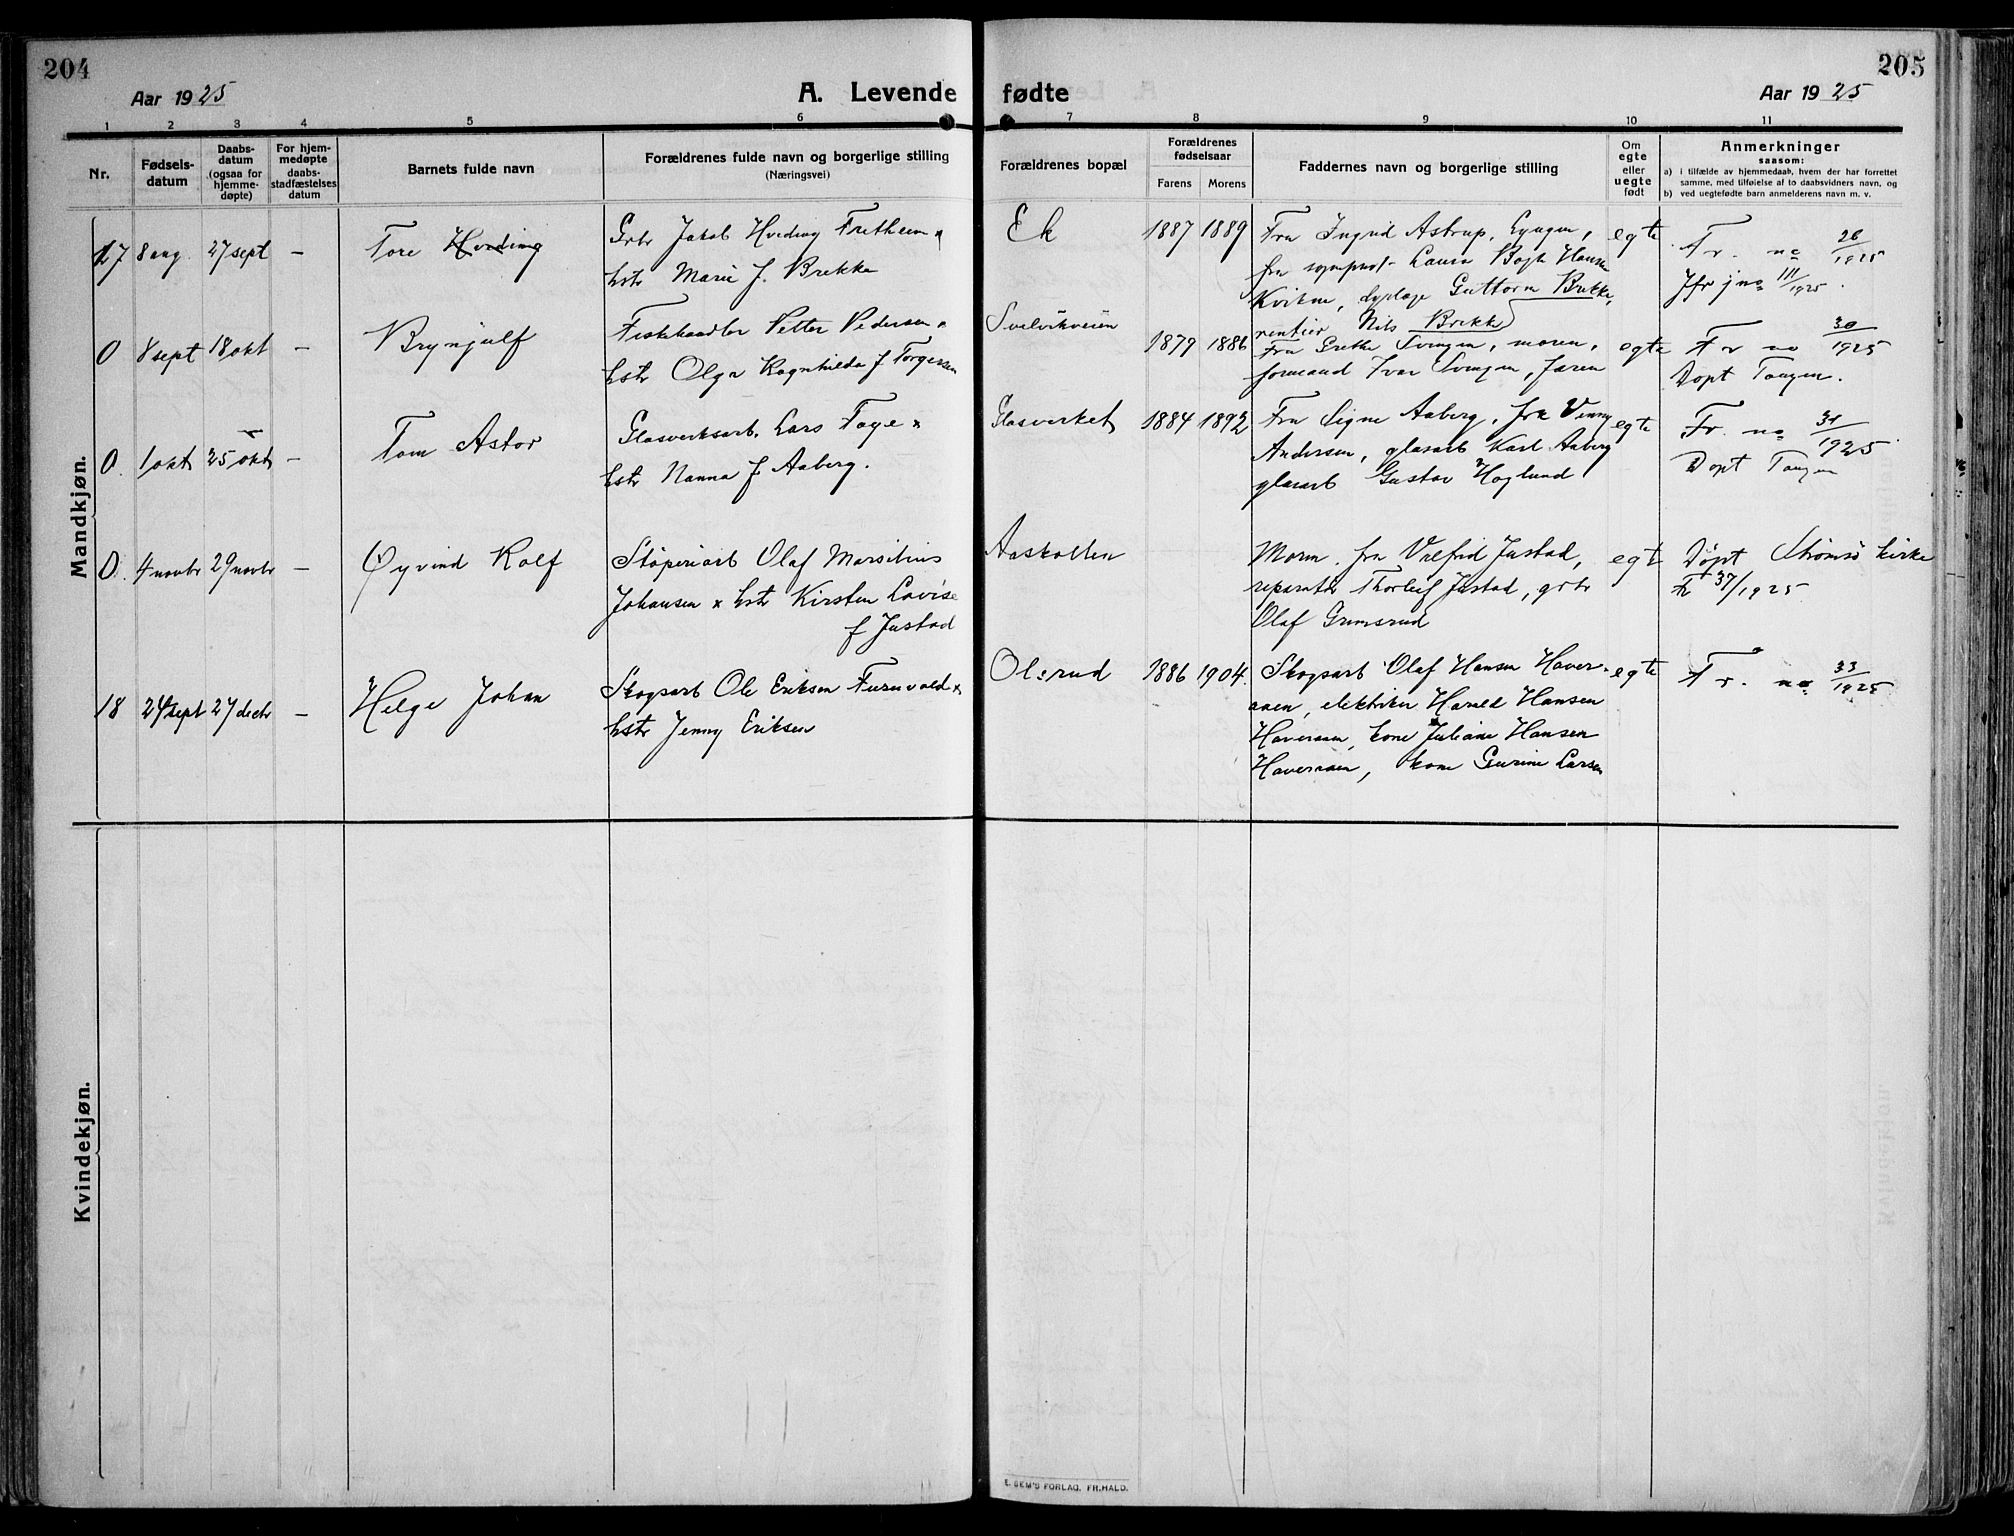 204
205
Aar 1925
A. Levende fødte
Aar 1925
1 2 3 4 5 6 7 8 9 10 11
Nr.
Fødsels-
datum
Daabs-
datum
(ogsaa for
hjemme-
døpte)
For hjem-
medøpte
daabs-
stadfæstelses
datum
Barnets fulde navn
Forældrenes fulde navn og borgerlige stilling
(Næringsvei)
Forældrenes bopæl
Forældrenes
fødselsaar
Farens Morens
Faddernes navn og borgerlige stilling
Om
egte
eller
uegte
født
Anmerkninger
saasom:
a) i tilfælde av hjemmedaab, hvem der har forrettet
samme, med tilføielse af to daabsvidners navn, og
b) ved uegtefødte barn anmelderens navn m. v.
Mandkjøn.
17 8 aug. 27 sept – Tore Hveding
Grbr Jakob Hveding Fretheim
hstr Marie f. Brekke
Ek 1887 1889
Fru Ingrid Astrup,
fru Laura Bogh Hansen
Kvikne, Guttorm Brekke,
rentier Nils Brekke
egte
Fr. no 26/1925
Jfr jno 111/1925.
0 8 sept 18 okt – Brynjulf
Fiskehandler Petter Pedersen
hstr Olga Ragnhilda f Torgersen
Svelvikveien 1879 1886
Fru Grethe Svingen, moren,
formand Ivar Svingen, faren
egte
Fr no 30/1925
Døpt Tangen.
0. 1 okt 25 okt – Tom Astor
Glasverksarb. Lars Foye
hstr Nanna f. Aaberg.
Glasverket 1884 1892
Fru Signe Aaberg, fru Venny
Andersen, glasarb Karl Aaberg
glasarb Gustav Høglund
egte
Fr. no 31/1925
Døpt Tangen
0. 4 novbr 29 novbr – Øyvind Rolf
Støperiarb Olaf Marsilius
Johansen hstr Kirsten Lovise
f Justad
Aaskollen
Moren, fru Valfrid Justad,
reparatør Thorleif Justad, grbr
Olaf Grimsrud
egt
Døpt Strømsø kirke
Fr 37/1925
18 24 sept 27 decbr – Helge Johan
Skogsarb Ole Eriksen Furuvald
hstr Jenny Eriksen
Olsrud 1886 1904.
Skogsarb Olaf Hansen Haver-
aaen, elektriker Harald Hansen
Haveraaen, kone Juliane Hansen
Haveraaen, kone Gurine Larsen
egte
Fr. no 33/1925
Kvindekjøn.
E. SEM'S FORLAG, FR.HALD.